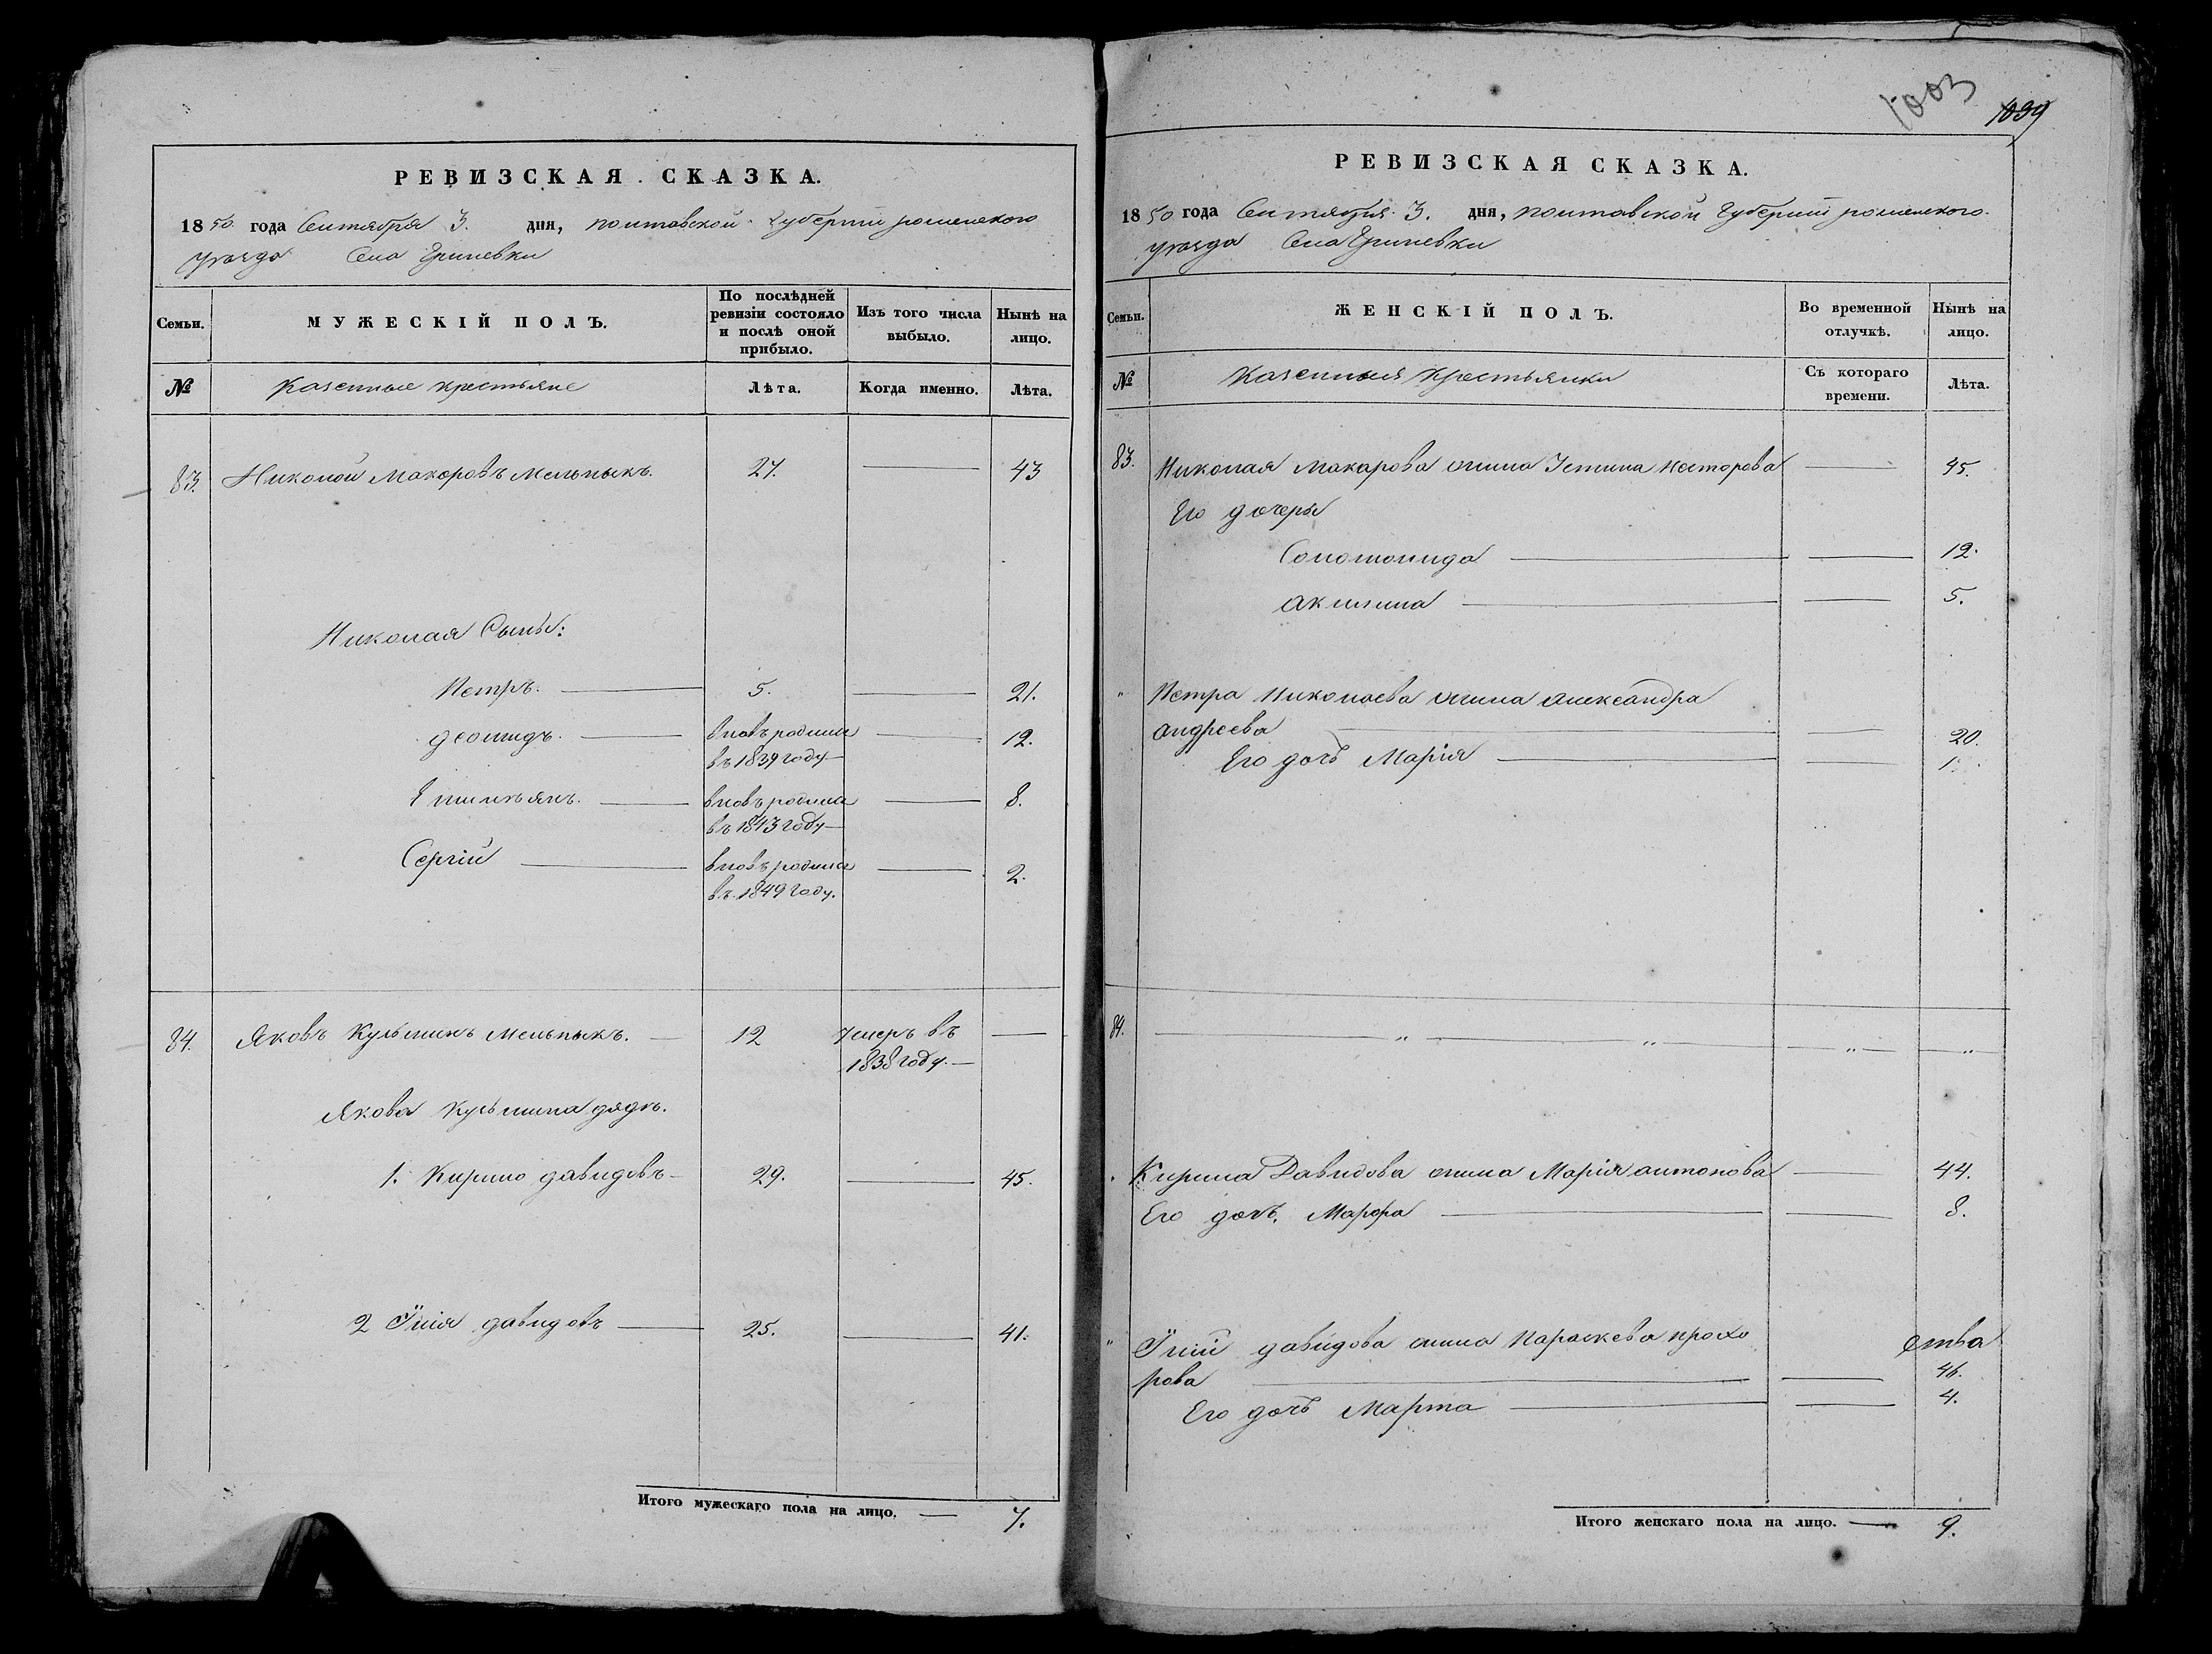 РЕВИЗСКАЯ СКАЗКА.
1850 года Сентября 3. дня, полтавской губернии роменского
уезда Села Гриневки
Семьи.
МУЖЕСКІЙ ПОЛЪ.
По послѣдней ревизіи состояло и послѣ оной прибыло.
Изъ того числа выбыло.
Нынѣ на лицо.
№
Казенные крестьяне
Лѣта.
Когда именно.
Лѣта.
83. Николай Макаровъ Мельныкъ. 27. 43
Николая Сыны:
Петръ. 5. 21.
вновь родился 12.
въ 1839 году
вновь родился 8.
въ 1843 году
Сергій вновь родился 2.
въ 1849 году.
84. Яковъ Кузьминъ Мельныкъ. 12 Умеръ въ
1838 году.
Якова Кузьмина дядя.
1. Кирило давидовъ 29. 45.
2 Илія давидовъ 25. 41.
Итого мужескаго пола на лицо. 7.
1003
1039
РЕВИЗСКАЯ СКАЗКА.
1850 года Сентября 3. дня, полтавской Губерніи роменского
уезда Села Гриневки
Семьи.
ЖЕНСКІЙ ПОЛЪ.
Во временной отлучкѣ.
Нынѣ на лицо.
№
Казенныя крестьянки
Съ котораго времени.
Лѣта.
83. Николая Макарова жина Устина Несторова 45.
Его дочеры
Соломонида 12.
Акилина 5.
" Петра Николаева жина Александра
Андреева 20.
Его дочь Марія 1.
84. " " " "
Кирила Давидова жина Марія антонова 44.
Его дочь Марфа 8.
" Иліи давидова жина Параскева прохо
рова 46.
Его дочь Марта 4.
Итого женскаго пола на лицо. 9.